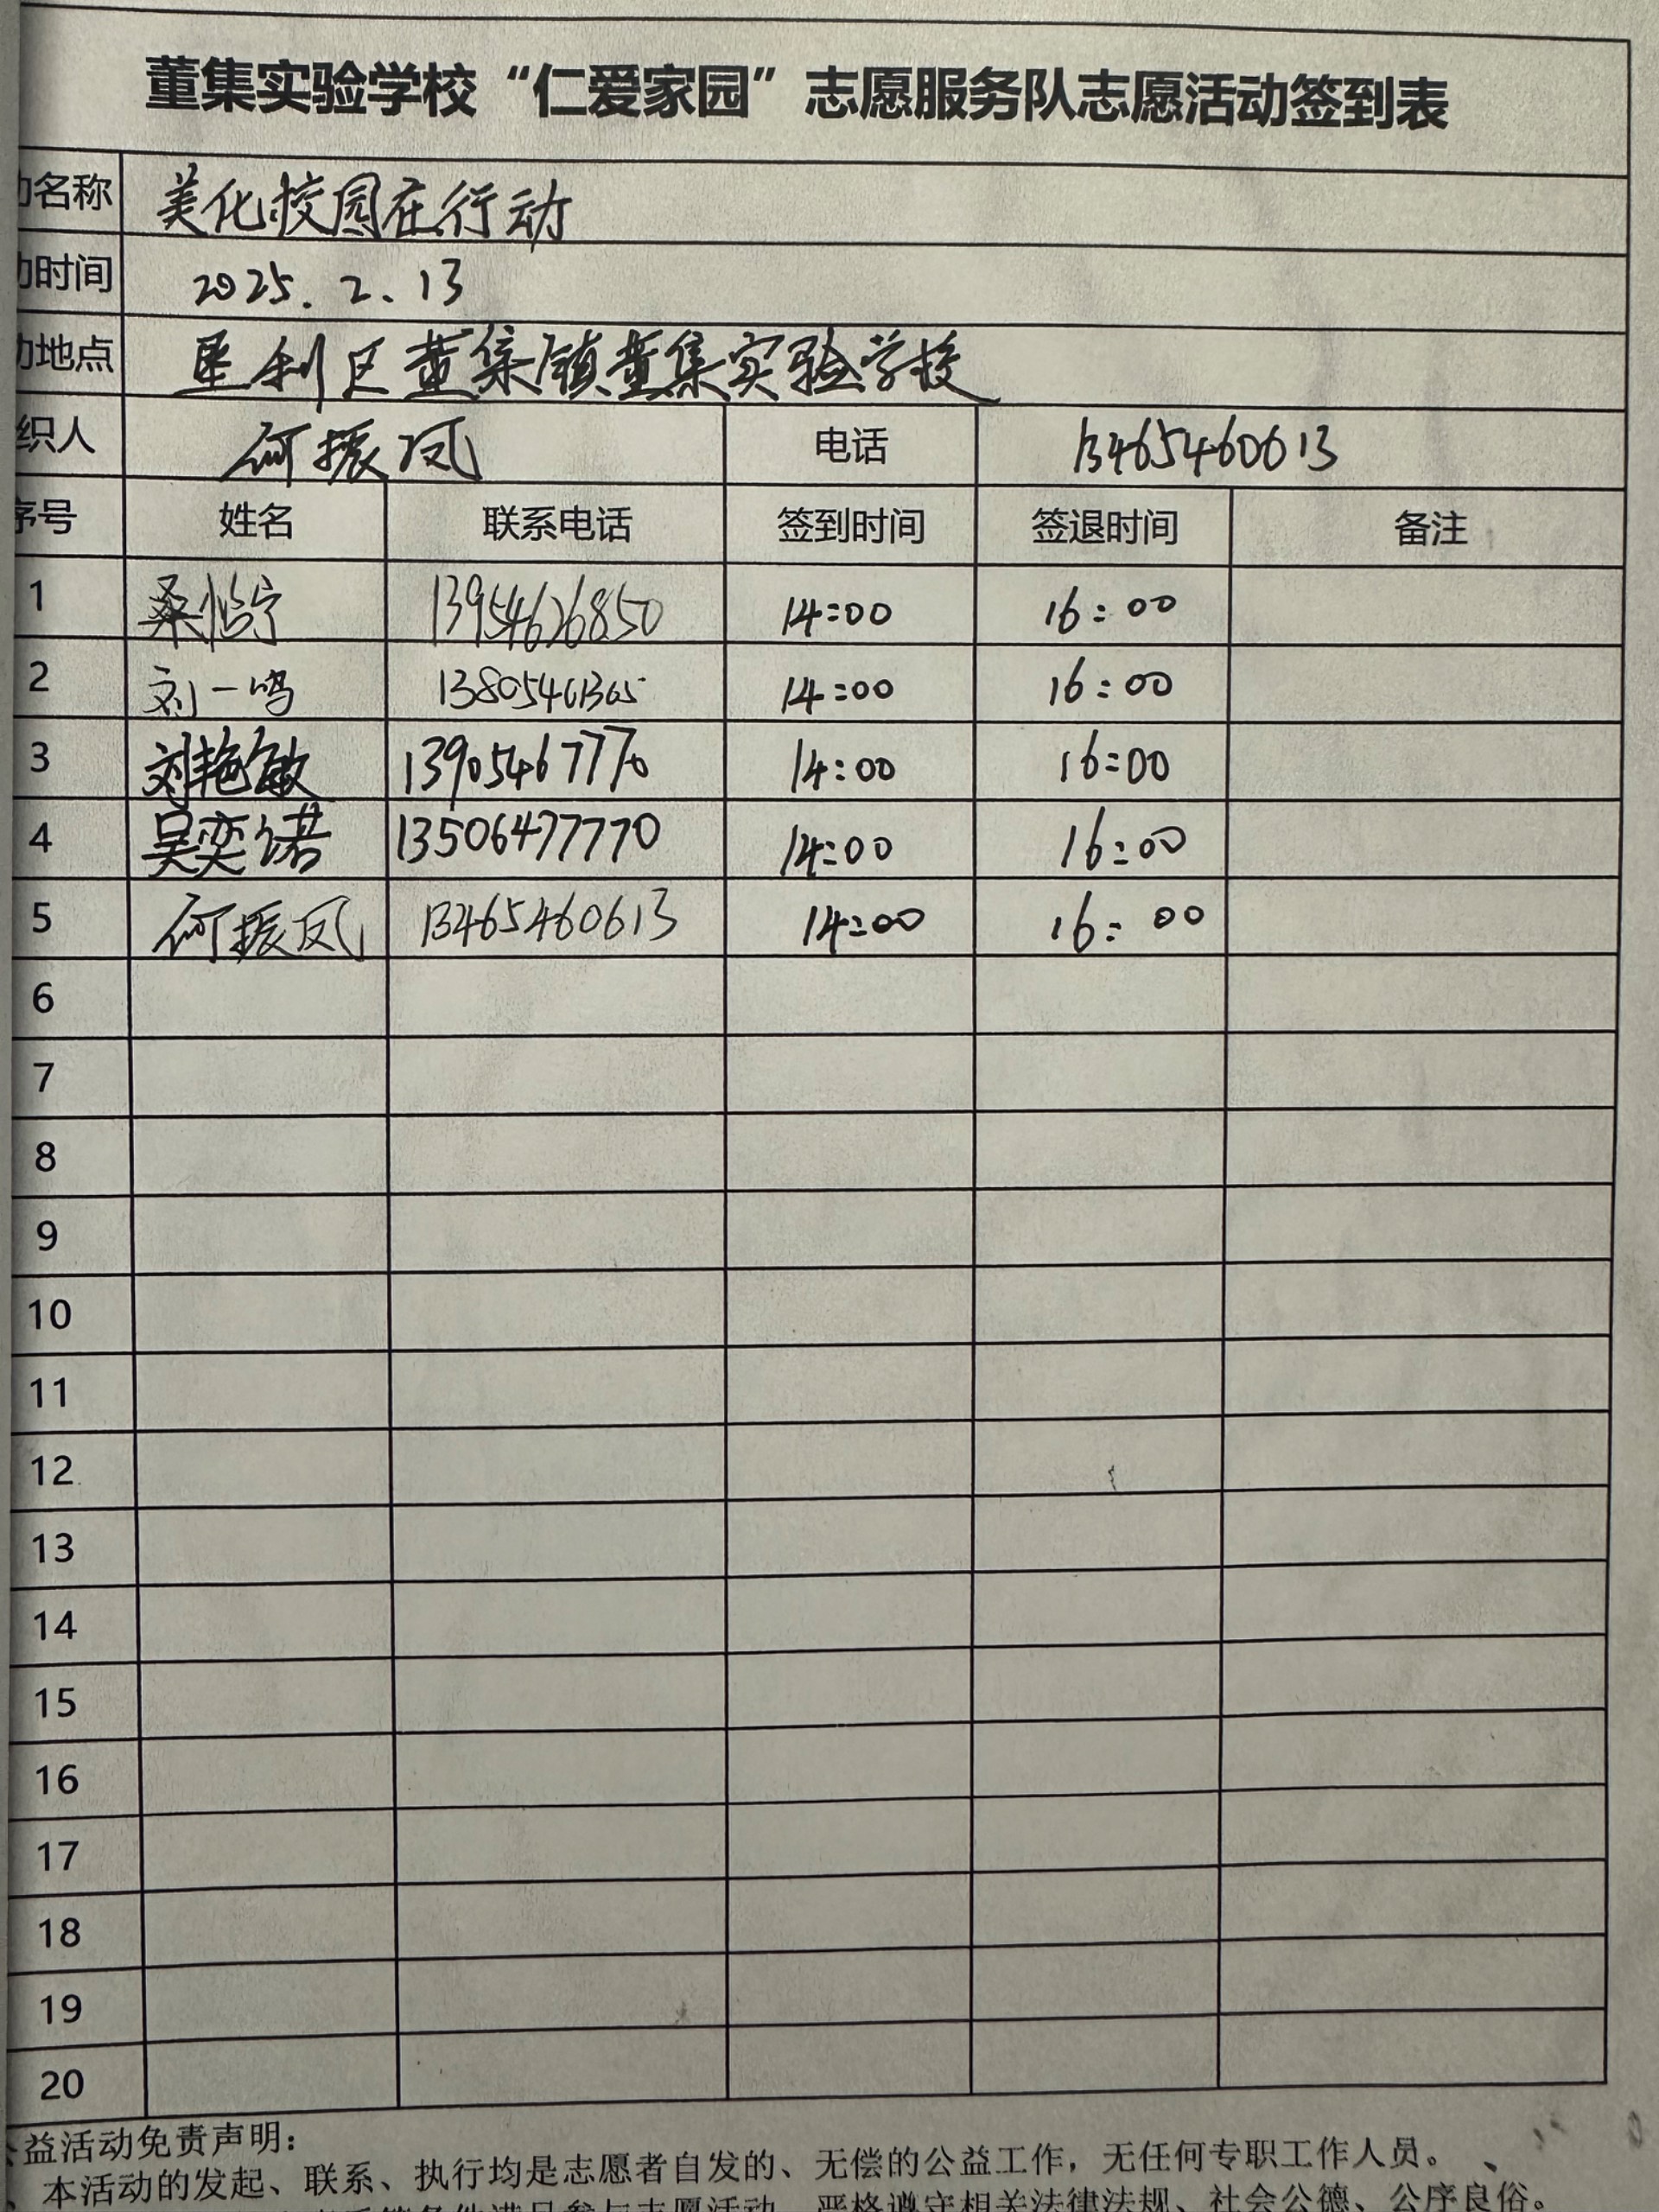 董集实验学校“仁爱家园”志愿服务队志愿活动签到表
动名称 美化校园在行动
动时间 2025.2.13
动地点 垦利区董集镇董集实验学校
织人 何振凤 电话 13465460613
序号 姓名 联系电话 签到时间 签退时间 备注
1 桑怡宁 13954626850 14:00 16:00
2 刘一鸣 13805461365 14:00 16:00
3 刘艳敏 13905467770 14:00 16:00
4 吴奕诺 13506477770 14:00 16:00
5 何振凤 13465460613 14:00 16:00
6
7
8
9
10
11
12
13
14
15
16
17
18
19
20
益活动免责声明：
本活动的发起、联系、执行均是志愿者自发的、无偿的公益工作，无任何专职工作人员。
参与志愿活动，严格遵守相关法律法规、社会公德、公序良俗。